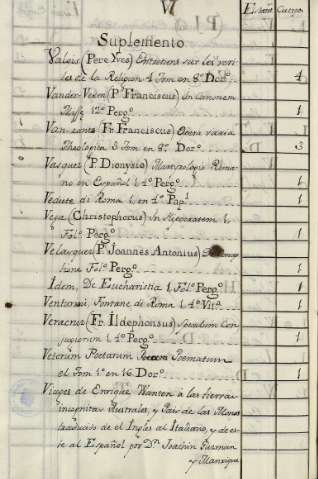 VI
Suplemento
Estante Cuerpo
Valois (Pere Yves) Entretiens sur les
de la Religion 4 Tom en 8º Docº 4
Vander-Veken (Pº Franciscus) In Canonem
12º Pergº 1
Van-Zantz (Fr. Franciscus) Opera varia
Theologica 3 Tom en 8º Docº 3
Vasquez (P. Dionysio) Martyrologio Roma
no en Español 1 4º Pergº 1
Vedute di Roma 1 en 4º Papl 1
Vega (Christophorus) In 1
Folº Pergº 1
Velasquez (P. Joannes Antonius)
Folº Pergº 1
Idem, De Eucharistia 1 Folº Pergº 1
Venturini Fontane de Roma 1 4º Vitª 1
Veracruz (Fr. Ildephonsus) Speculum Con
jugiorum 1 4º Pergº 1
Veterum Poetarum Poematum
el Tom 1º en 16 Docº 1
Viages de Enrique Wanton a las tierras
incognitas Australes, y Pais de las Monas
traducido de el Ingles al Italiano, y de es
te al Español por Dn Joachin Guzman
y Manrique